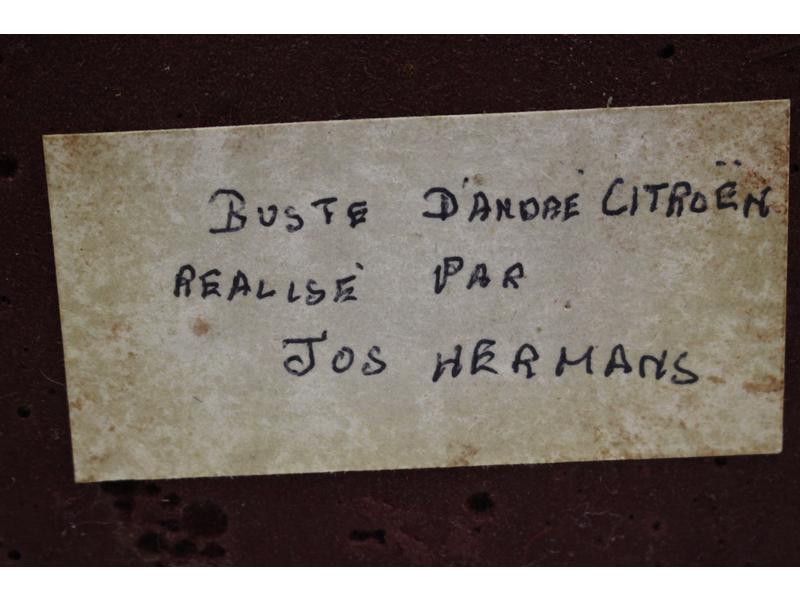 BUSTE D'ANDRÉ CITROËN
REALISÉ PAR
JOS HERMANS